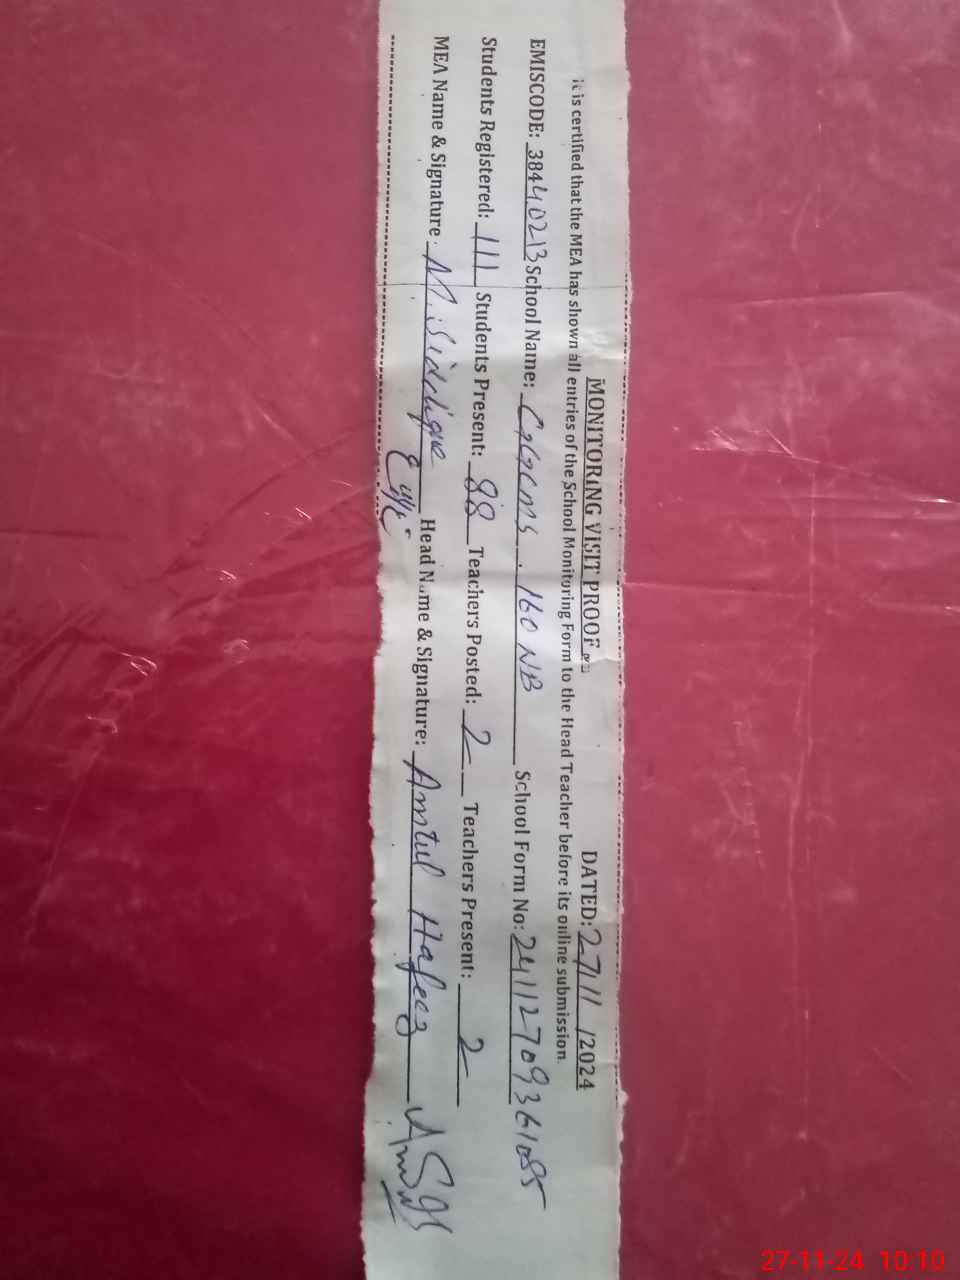 MONITORING VISIT PROOF DATED: 27/11/2024
it is certified that the MEA has shown all entries of the School Monitoring Form to the Head Teacher before its online submission.
EMISCODE: 38440213 School Name: GGCMS. 160 NB School Form No: 24112709361085
Students Registered: 111 Students Present: 88 Teachers Posted: 2 Teachers Present: 2
MEA Name & Signature: M. Siddique Head Name & Signature: Amtul Hafeez
27-11-24 10:10